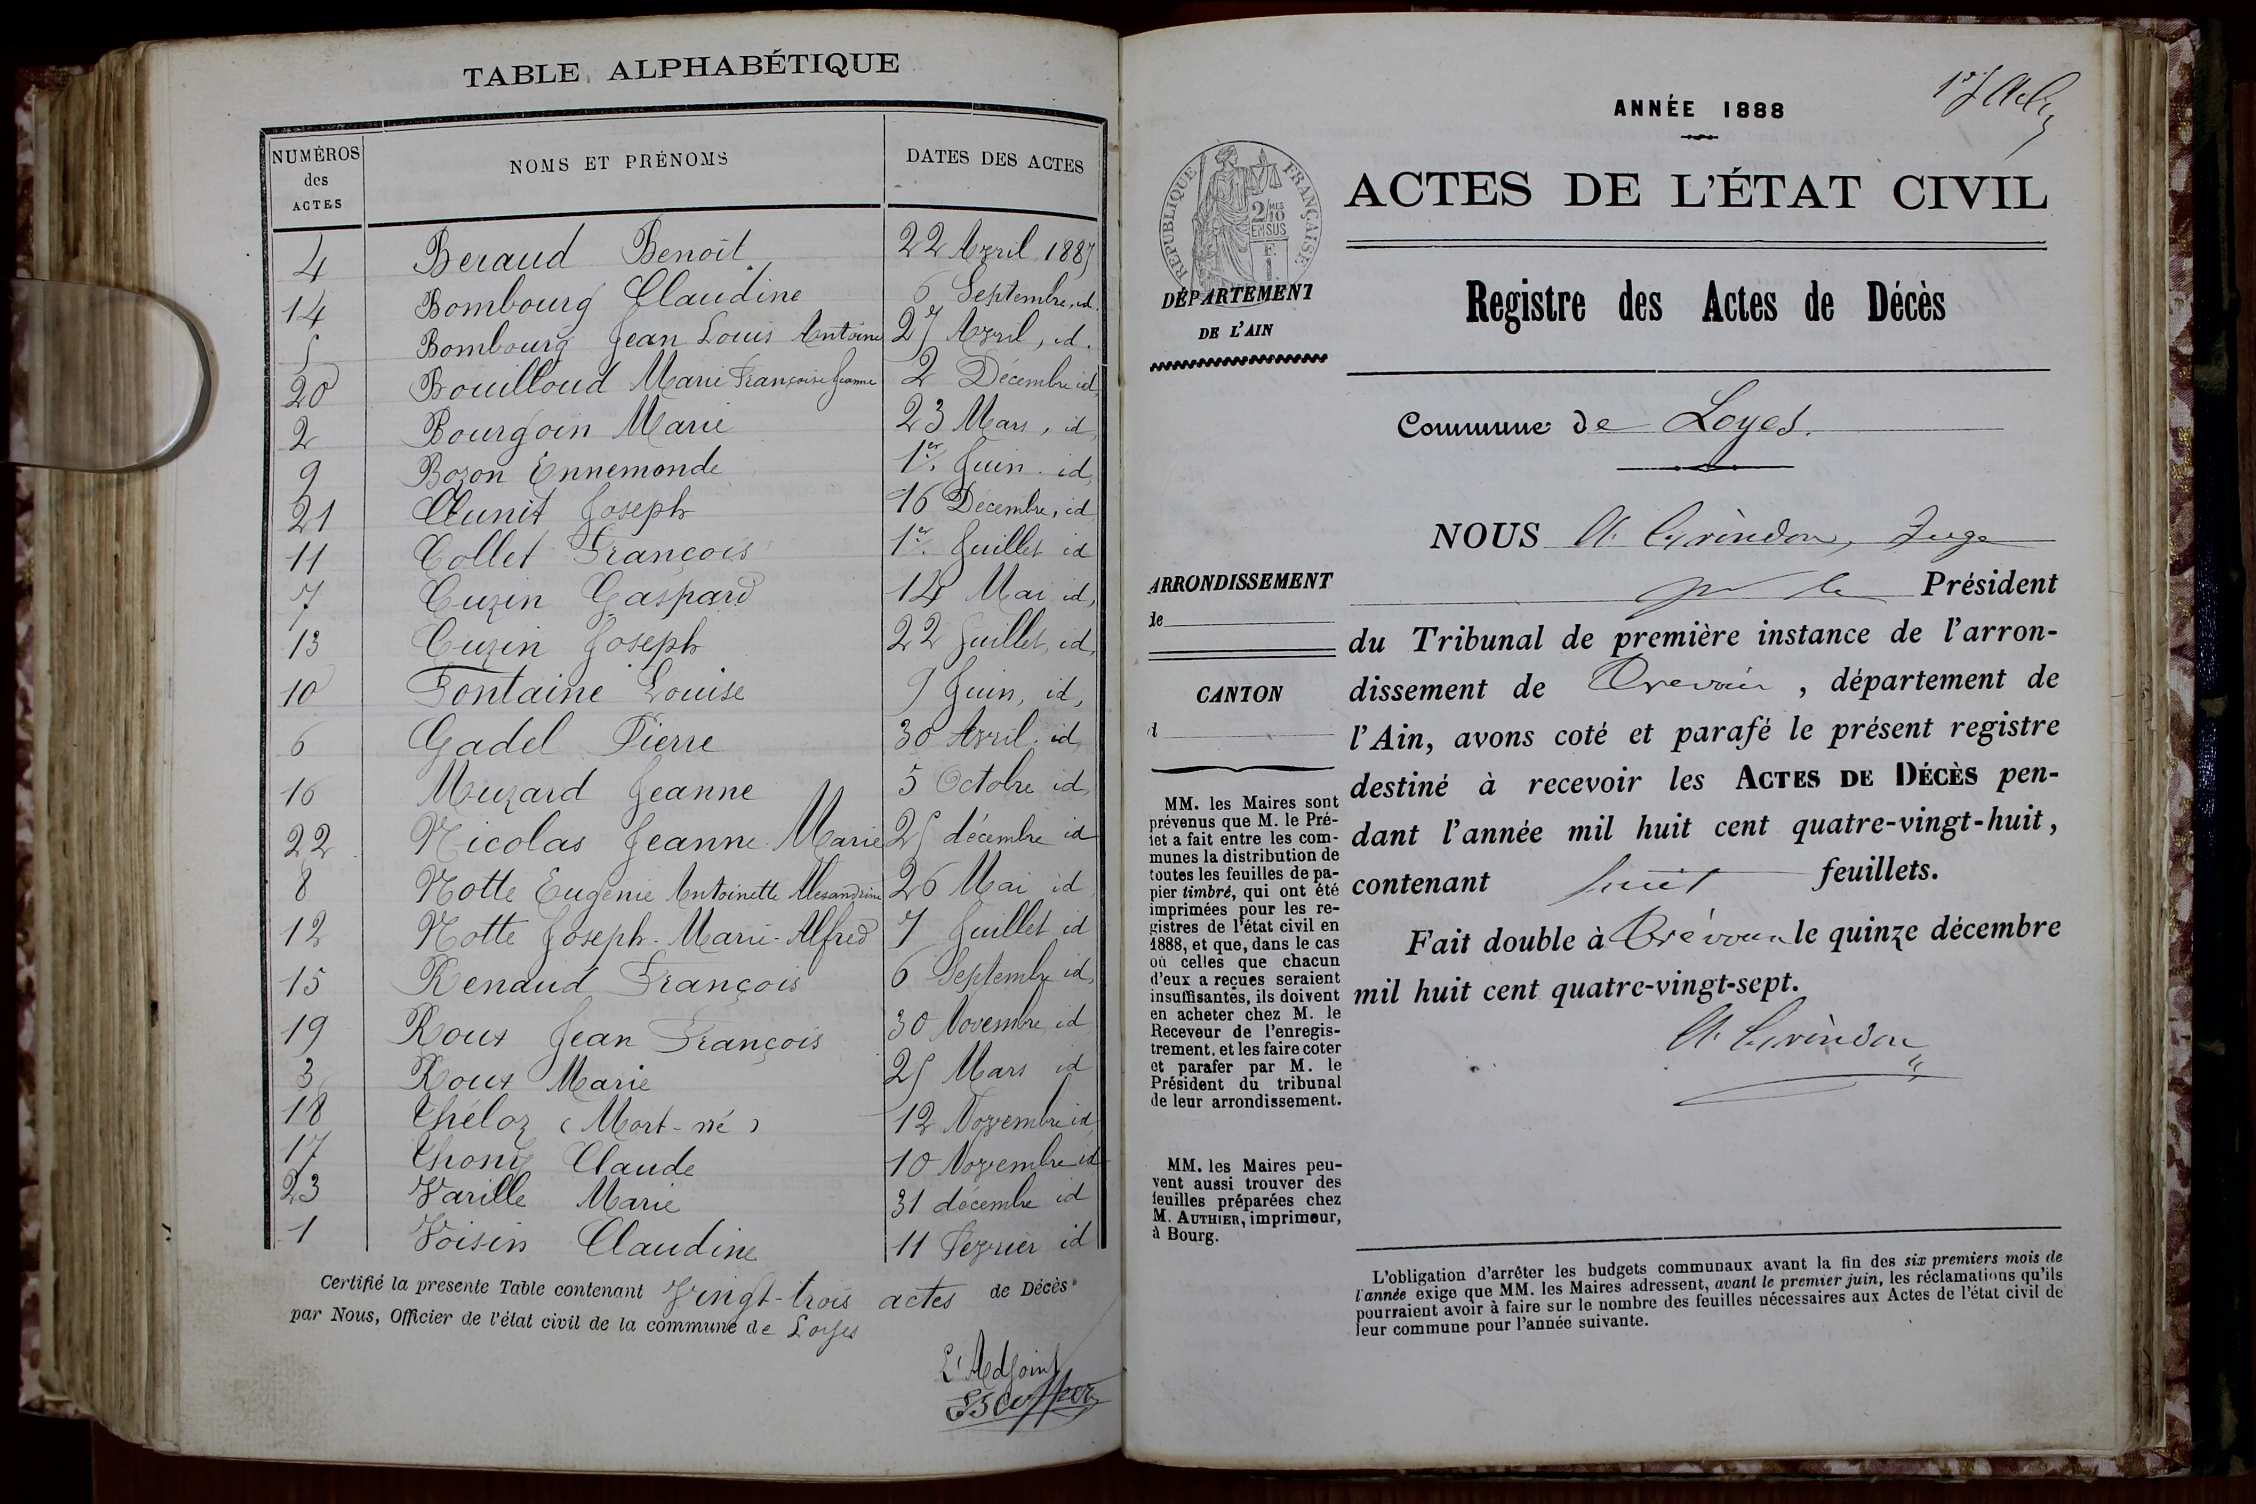 TABLE ALPHABÉTIQUE
NUMÉROS des ACTES NOMS ET PRÉNOMS DATES DES ACTES
4 Beraud Benoît 22 Avril 1887
14 Bombourg Claudine 6 Septembre, id.
5 Bombourg Jean Louis Antoine 27 Avril, id.
20 Bouilloud Marie Françoise Jeanne 2 Décembre id,
2 Bourgoin Marie 23 Mars, id,
9 Bozon Ennemonde 1er. Juin id,
21 Clunit Joseph 16 Décembre, id
11 Collet François 1er. Juillet id
7 Cuzin Gaspard 14 Mai id,
13 Cuzin Joseph 22 Juillet, id,
10 Fontaine Louise 9 Juin, id,
6 Gadel Pierre 30 Avril id,
16 Muzard Jeanne 5 Octobre id,
22 Nicolas Jeanne Marie 25 décembre id
8 Notte Eugénie Antoinette Alexandrine 26 Mai id
12 Notte Joseph-Marie-Alfred 7 Juillet id
15 Renaud François 6 Septembre id,
19 Roux Jean François 30 Novembre id
3 Roux Marie 25 Mars id
18 Théloz (Mort-né) 12 Novembre id,
17 Thony Claude 10 Novembre id
23 Varille Marie 31 décembre id
1 Voisin Claudine 11 Février id
Certifié la presente Table contenant Vingt-trois actes de Décès
par Nous, Officier de l'état civil de la commune de Loyes
L'Adjoint
1er f
ANNÉE 1888
ACTES DE L'ÉTAT CIVIL
RÉPUBLIQUE FRANÇAISE
2/10 MES
EN SUS
F.
1.
DÉPARTEMENT
DE L'AIN
Registre des Actes de Décès
Commune de Loyes.
NOUS A. Grindon, Juge
pr le Président
du Tribunal de première instance de l'arron-
dissement de Trévoux, département de
l'Ain, avons coté et parafé le présent registre
destiné à recevoir les ACTES DE DÉCÈS pen-
dant l'année mil huit cent quatre-vingt-huit,
contenant huit feuillets.
Fait double à Trévoux le quinze décembre
mil huit cent quatre-vingt-sept.
A. Grindon
ARRONDISSEMENT
de
CANTON
d
MM. les Maires sont
prévenus que M. le Pré-
fet a fait entre les com-
munes la distribution de
toutes les feuilles de pa-
pier timbré, qui ont été
imprimées pour les re-
gistres de l'état civil en
1888, et que, dans le cas
où celles que chacun
d'eux a reçues seraient
insuffisantes, ils doivent
en acheter chez M. le
Receveur de l'enregis-
trement, et les faire coter
et parafer par M. le
Président du tribunal
de leur arrondissement.
MM. les Maires peu-
vent aussi trouver des
feuilles préparées chez
M. AUTHIER, imprimeur,
à Bourg.
L'obligation d'arrêter les budgets communaux avant la fin des six premiers mois de
l'année exige que MM. les Maires adressent, avant le premier juin, les réclamations qu'ils
pourraient avoir à faire sur le nombre des feuilles nécessaires aux Actes de l'état civil de
leur commune pour l'année suivante.